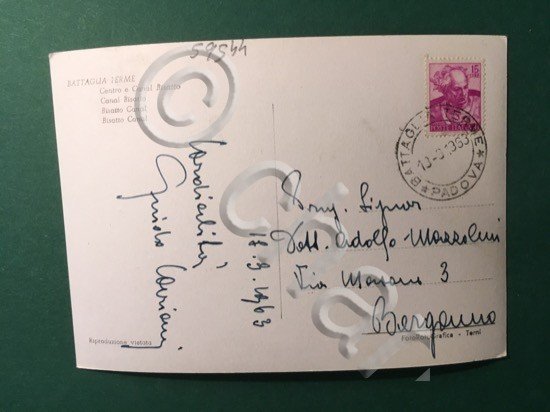 59544
BATTAGLIA TERME
Centro e Canal Bisatto
Canal Bisatto
Bisatto Canal
Bisatto Canal
Cordialità
Guido
18.9.1963
POSTE ITALIANE
BATTAGLIA TERME
PADOVA
Egr. Signor
Dott. Adolfo Mazzolini
Via 3
Bergamo
Riproduzione vietata
Fotorotografica - Terni